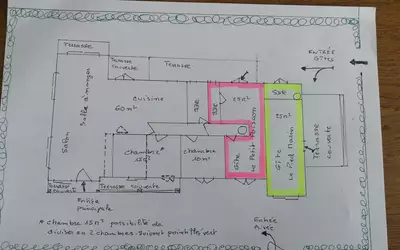 Terrasse
Terrasse
couverte
Terrasse
ENTRÉE
GÎTES
Salon
Salle à manger
cuisine
60m²
SDE
SDE
25m²
Le Petit Poisson
Gîte
SDE
25m²
Gîte
Le Pied Marin
Terrasse
couverte
chambre*
15m²
chambre
10m²
Terrasse
couverte
Terrasse couverte
Entrée
principale
Entrée
* chambre 15m² possibilité de
diviser en 2 chambres suivant pointillés vert